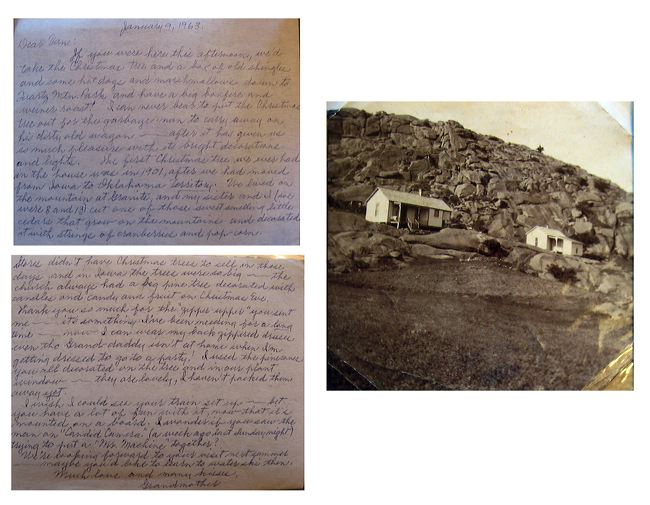 January 9, 1963.
Dear Arne:
If you were here this afternoon, we'd
take the Christmas tree and a box of old shingles
and some hot dogs and marshmallows down to
Quartz Mtn. Park and have a big bonfire and
weiner roast! I can never bear to put the Christmas
tree out for the garbage man to carry away on
his dirty old wagon — after it has given us
so much pleasure with its bright decorations
and lights. The first Christmas tree we ever had
in the house was in 1901, after we had moved
from Iowa to Oklahoma Territory. We lived on
the mountain at Granite, and my sister and I (we
were 8 and 13) cut one of those sweet smelling little
cedars that grow on the mountains and decorated
it with strings of cranberries and pop-corn.
Stores didn't have Christmas trees to sell in those
days and in Iowa the trees were so big — the
church always had a big pine tree decorated with
candles and candy and fruit on Christmas Eve.
Thank you so much for the "zipper upper" you sent
me — it's something I've been needing for a long
time — now I can wear my back zippered dresses
even tho Grand-daddy isn't at home when I'm
getting dressed to go to a party! I used the pinecones
you all decorated on the tree and in our plant
window — they are lovely, I haven't packed them
away yet.
I wish I could see your train set up — bet
you have a lot of fun with it, now that it's
mounted on a board. I wonder if you saw the
man on "Candid Camera" (a week ago last Sunday night)
trying to put a "Mr. Machine" together?
We're looking forward to your visit next summer
— maybe you'd like to learn to water ski then.
Much love and many kisses,
Grandmother